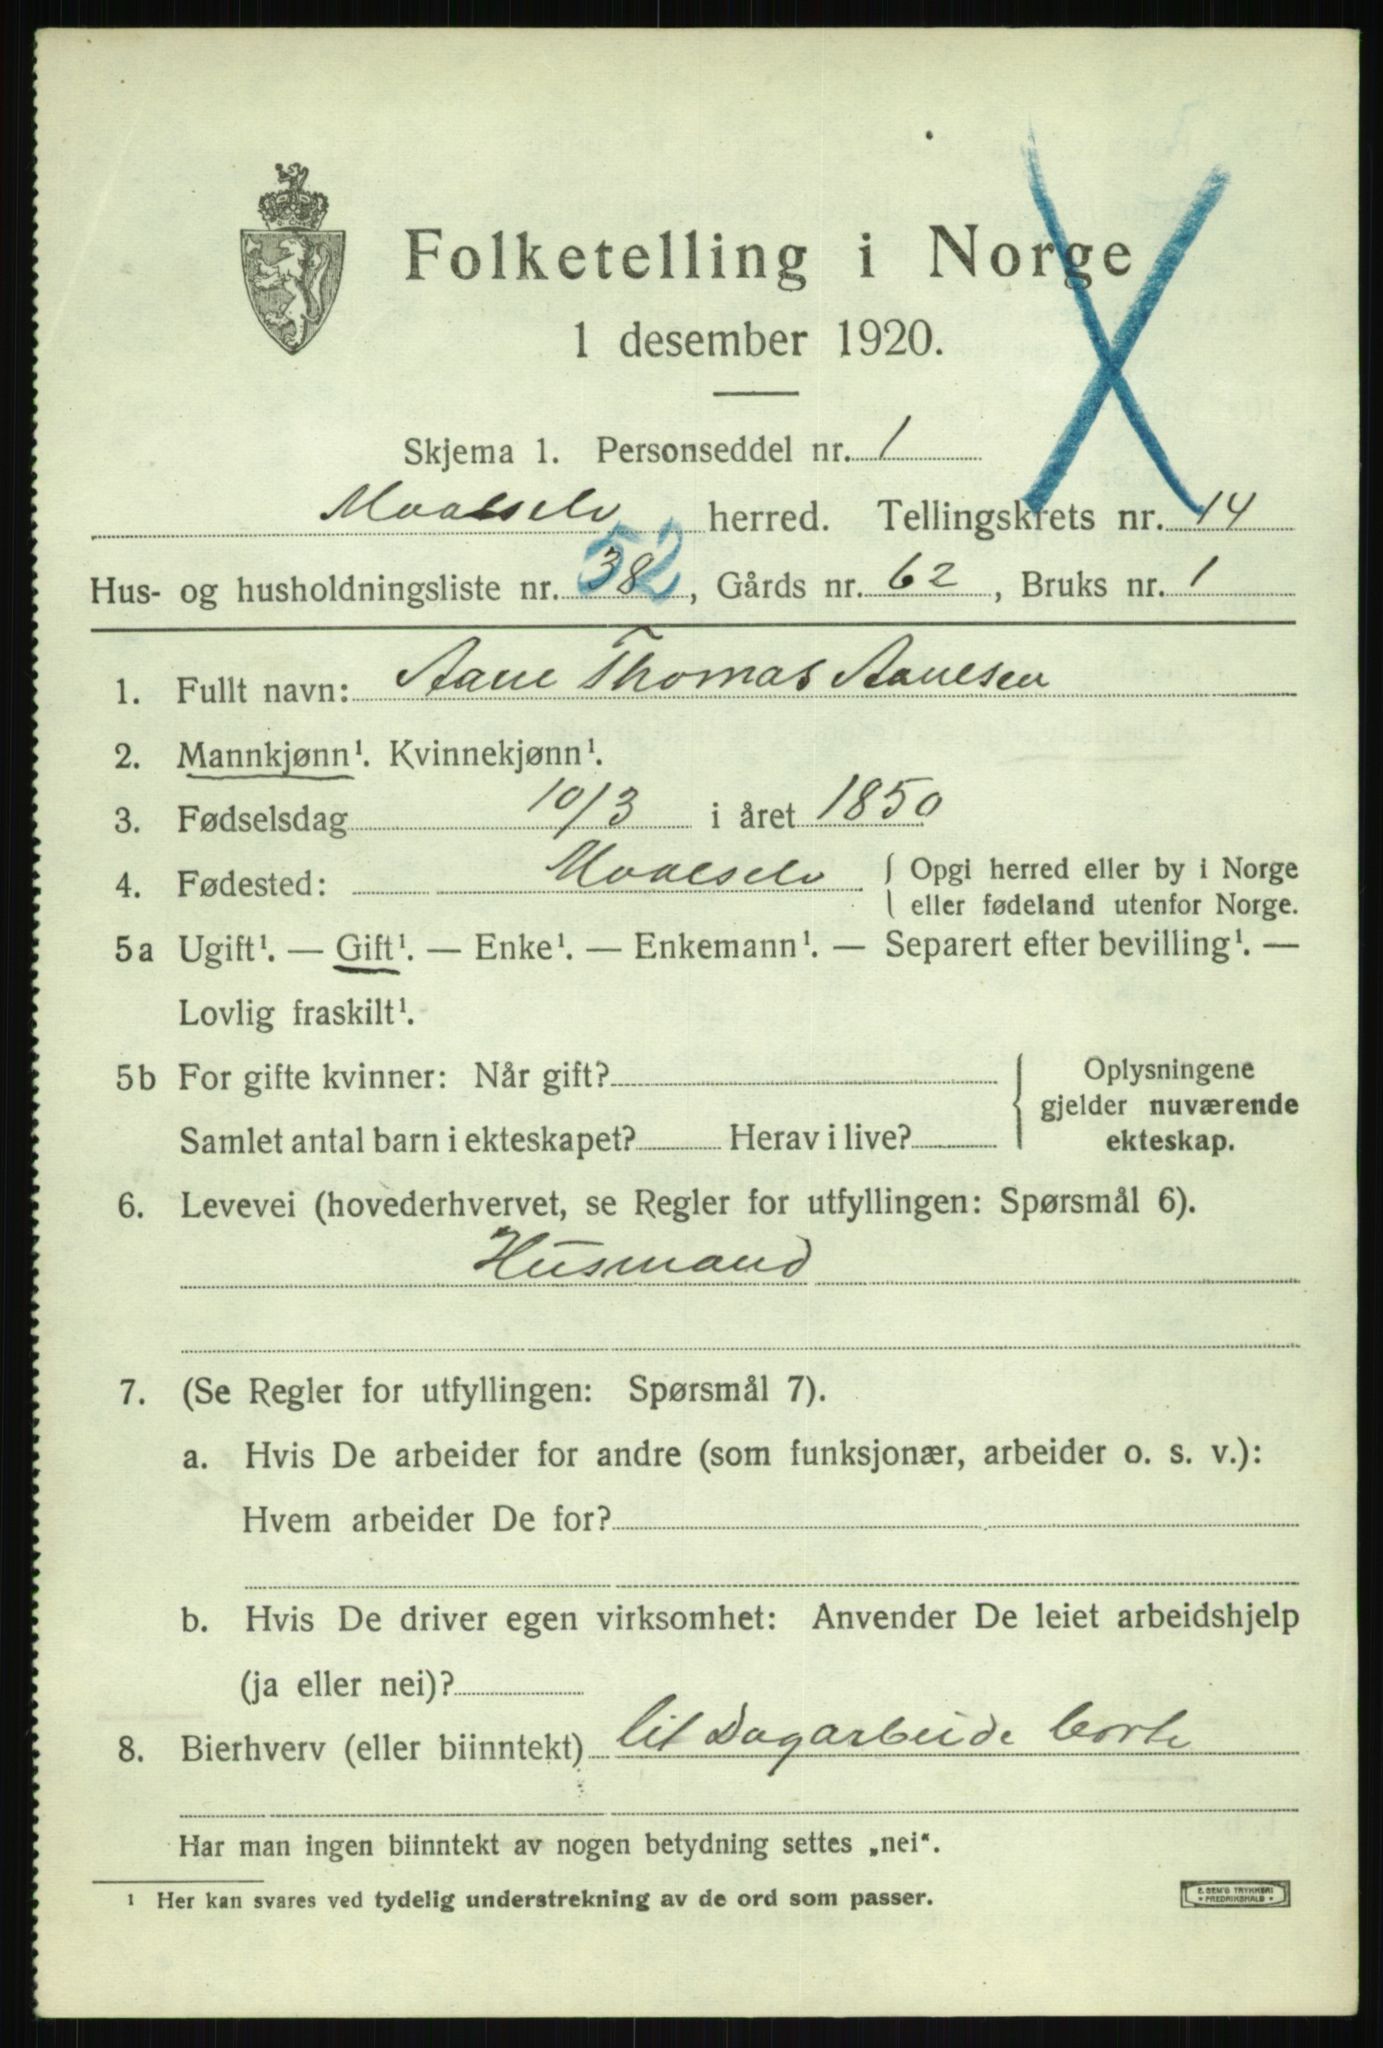 Folketelling i Norge
1 desember 1920.
Skjema 1. Personseddel nr. 1
Maalselv herred. Tellingskrets nr. 14
Hus- og husholdningsliste nr. 38 52, Gårds nr. 62, Bruks nr. 1
1. Fullt navn: Aane Thomas Aanesen
2. Mannkjønn¹. Kvinnekjønn¹.
3. Fødselsdag 10/3 i året 1850
4. Fødested: Maalselv { Opgi herred eller by i Norge
eller fødeland utenfor Norge.
5a Ugift¹. — Gift¹. — Enke¹. — Enkemann¹. — Separert efter bevilling¹. —
Lovlig fraskilt¹.
5b For gifte kvinner: Når gift?
Samlet antal barn i ekteskapet? Herav i live?
Oplysningene
gjelder nuværende
ekteskap.
6. Levevei (hovederhvervet, se Regler for utfyllingen: Spørsmål 6).
Husmand
7. (Se Regler for utfyllingen: Spørsmål 7).
a. Hvis De arbeider for andre (som funksjonær, arbeider o. s. v.):
Hvem arbeider De for?
b. Hvis De driver egen virksomhet: Anvender De leiet arbeidshjelp
(ja eller nei)?
8. Bierhverv (eller biinntekt) lit Dagarbeide borte
Har man ingen biinntekt av nogen betydning settes „nei".
¹ Her kan svares ved tydelig understrekning av de ord som passer.
E. SEM'S TRYKKERI
FREDRIKSHALD